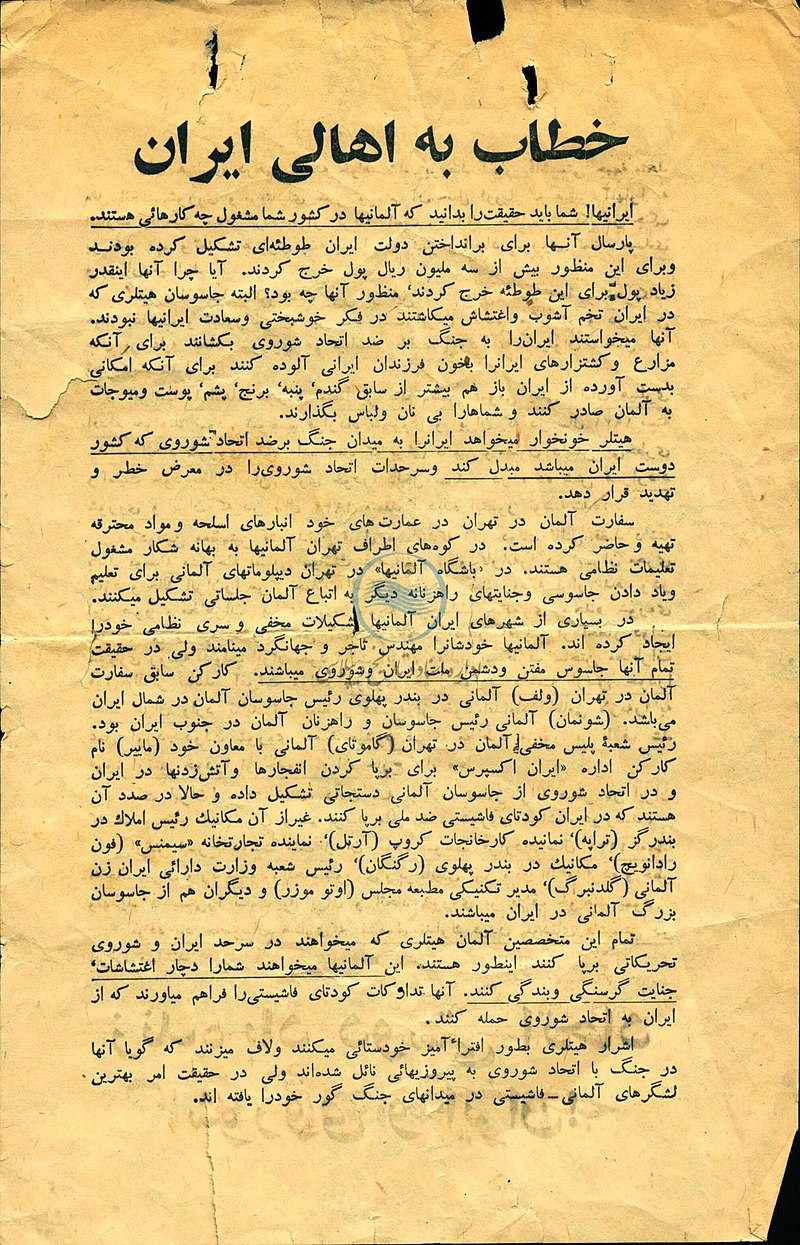 خطاب به اهالی ایران
ایرانیها! شما باید حقیقت‌را بدانید که آلمانیها در کشور شما مشغول چه کارهائی هستند.
پارسال آنها برای برانداختن دولت ایران طوطئه‌ای تشکیل کرده بودند
وبرای این منظور بیش از سه ملیون ریال پول خرج کردند. آیا چرا آنها اینقدر
زیاد پول برای این طوطئه خرج کردند، منظور آنها چه بود؟ البته جاسوسان هیتلری که
در ایران تخم آشوب واغتشاش میکاشتند در فکر خوشبختی وسعادت ایرانیها نبودند.
آنها میخواستند ایران‌را به جنگ بر ضد اتحاد شوروی بکشانند برای آنکه
مزارع وکشتزارهای ایرانرا بخون فرزندان ایرانی آلوده کنند برای آنکه امکانی
بدست آورده از ایران باز هم بیشتر از سابق گندم، پنبه، برنج، پشم، پوست ومیوجات
به آلمان صادر کنند و شماهارا بی نان ولباس بگذارند.
هیتلر خونخوار میخواهد ایرانرا به میدان جنگ برضد اتحاد شوروی که کشور
دوست ایران میباشد مبدل کند وسرحدات اتحاد شوروی‌را در معرض خطر و
تهدید قرار دهد.
سفارت آلمان در تهران در عمارت‌های خود انبارهای اسلحه و مواد محترقه
تهیه و حاضر کرده است. در کوه‌های اطراف تهران آلمانیها به بهانه شکار مشغول
تعلیمات نظامی هستند. در «باشگاه آلمانیها» در تهران دیپلوماتهای آلمانی برای تعلیم
ویاد دادن جاسوسی وجنایتهای راهزنانه دیگر به اتباع آلمان جلساتی تشکیل میکنند.
در بسیاری از شهرهای ایران آلمانیها تشکیلات مخفی و سری نظامی خودرا
ایجاد کرده اند. آلمانیها خودشانرا مهندس تاجر و جهانگرد مینامند ولی در حقیقت
تمام آنها جاسوس مفتن ودشمن ملت ایران وشوروی میباشند. کارکن سابق سفارت
آلمان در تهران (ولف) آلمانی در بندر پهلوی رئیس جاسوسان آلمان در شمال ایران
می‌باشد. (شونمان) آلمانی رئیس جاسوسان و راهزنان آلمان در جنوب ایران بود.
رئیس شعبهٔ پلیس مخفی آلمان در تهران (گاموتای) آلمانی با معاون خود (مایر) نام
کارکن اداره «ایران اکسپرس» برای برپا کردن انفجارها وآتش‌زدنها در ایران
و در اتحاد شوروی از جاسوسان آلمانی دستجاتی تشکیل داده و حالا در صدد آن
هستند که در ایران کودتای فاشیستی ضد ملی برپا کنند. غیراز آن مکانیك رئیس املاك در
بندرگز (تراپه)، نماینده کارخانجات کروپ (آرتل)، نماینده تجارتخانه «سیمنس» (فون
رادانویچ)، مکانیك در بندر پهلوی (رگنگان)، رئیس شعبه وزارت دارائی ایران زن
آلمانی (گلدنبرگ)، مدیر تکنیکی مطبعه مجلس (اوتو موزر) و دیگران هم از جاسوسان
بزرگ آلمانی در ایران میباشند.
تمام این متخصصین آلمان هیتلری که میخواهند در سرحد ایران و شوروی
تحریکاتی برپا کنند اینطور هستند. این آلمانیها میخواهند شمارا دچار اغتشاشات،
جنایت گرسنگی وبندگی کنند. آنها تدارکات کودتای فاشیستی‌را فراهم میاورند که از
ایران به اتحاد شوروی حمله کنند.
اشرار هیتلری بطور افتراء‌آمیز خودستائی میکنند ولاف میزنند که گویا آنها
در جنگ با اتحاد شوروی به پیروزیهائی نائل شده‌اند ولی در حقیقت امر بهترین
لشگرهای آلمانی‌ـ‌فاشیستی در میدانهای جنگ گور خودرا یافته اند.